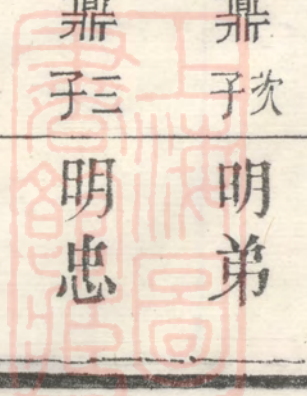 鼎
次子
明弟
鼎
三子
明忠